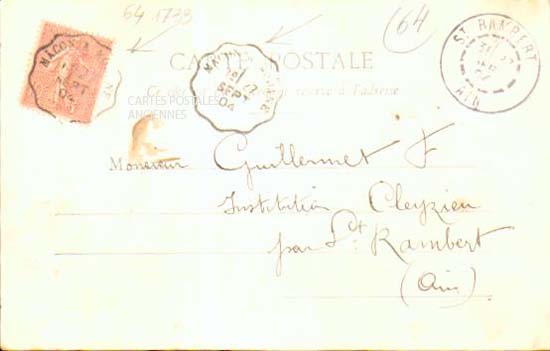 64 1733
64
CARTE POSTALE
Ce côté est exclusivement réservé à l'adresse
MACON
22
SEPT
04
22
SEPT
04
ST RAMBERT
AIN
CARTES POSTALES
ANCIENNES
Monsieur Guillermet F
Institution Cleyzieu
par St Rambert
(Ain)